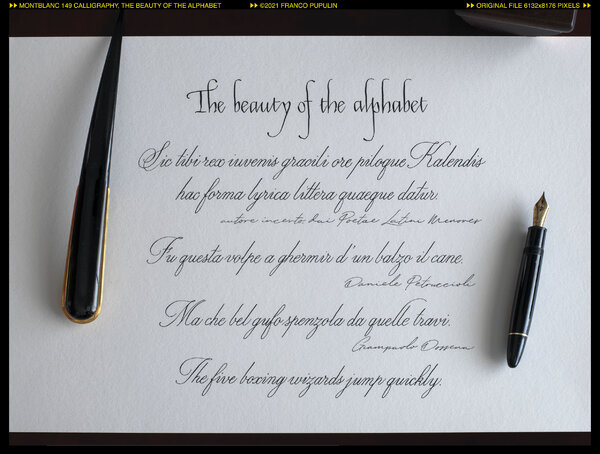 MONTBLANC 149 CALLIGRAPHY, THE BEAUTY OF THE ALPHABET ©2021 FRANCO PUPULIN ORIGINAL FILE 6132x8176 PIXELS
The beauty of the alphabet
Sic tibi rex iuvenis gracili ore piloque Kalendis
hac forma lyrica littera quaeque datur.
autore incerto, dai Poetae Latini Menores
Fu questa volpe a ghermir d'un balzo il cane.
Daniele Petruccioli
Ma che bel gufo spenzola da quelle travi.
Giampaolo Dossena
The five boxing wizards jump quickly.